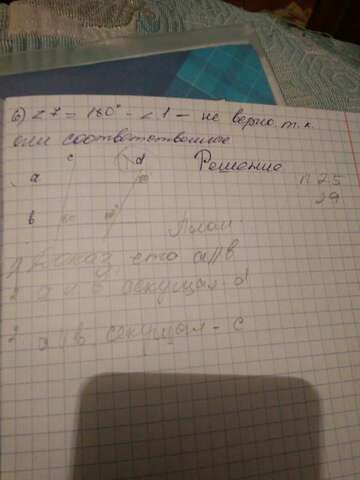 б) ∠7 = 180° - ∠1 - не верно т.к.
они соответственные
c d Решение
a
п 25
29
b
План
1 Доказ что a∥b
2 a b секущая - d
3 a∥b секущая - c